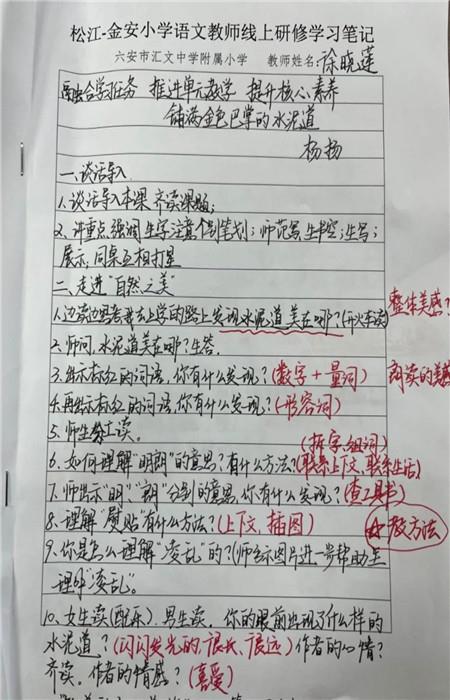 松江-金安小学语文教师线上研修学习笔记
六安市汇文中学附属小学 教师姓名:徐晓莲
融合学习任务 推进单元教学 提升核心素养
铺满金色巴掌的水泥道
杨扬
一、谈话导入
1、谈话导入本课,齐读课题;
2、讲重点,强调生字注意个别笔划;师范写,生书空;生写;
展示;同桌互相打星
二、走进“自然之美”
1.边读边思考我去上学的路上发现水泥道美在哪?(开火车读) 整体美感?
2.师问,水泥道美在哪?生答.
3.出示标红的词语,你有什么发现?(数字+量词) 朗读的美感
4.再出示标红的词语,你有什么发现?(形容词)
5.师生读.
(拆字,组词)
6、如何理解“明朗”的意思?有什么方法?(联系上下文,联系生活)
7、师出示“明”、“朗”分别的意思,你有什么发现?(查工具书)
8、理解“熨帖”有什么方法?(上下文,插图) ☆教方法
9、你是怎么理解“凌乱”的?(师出示图片进一步帮助生
理解“凌乱”。
10、女生读(配乐).男生读. 你的眼前出现了什么样的
水泥道?(闪闪发光的、很长、很远)作者的心情?
齐读.作者的情感?(喜爱)